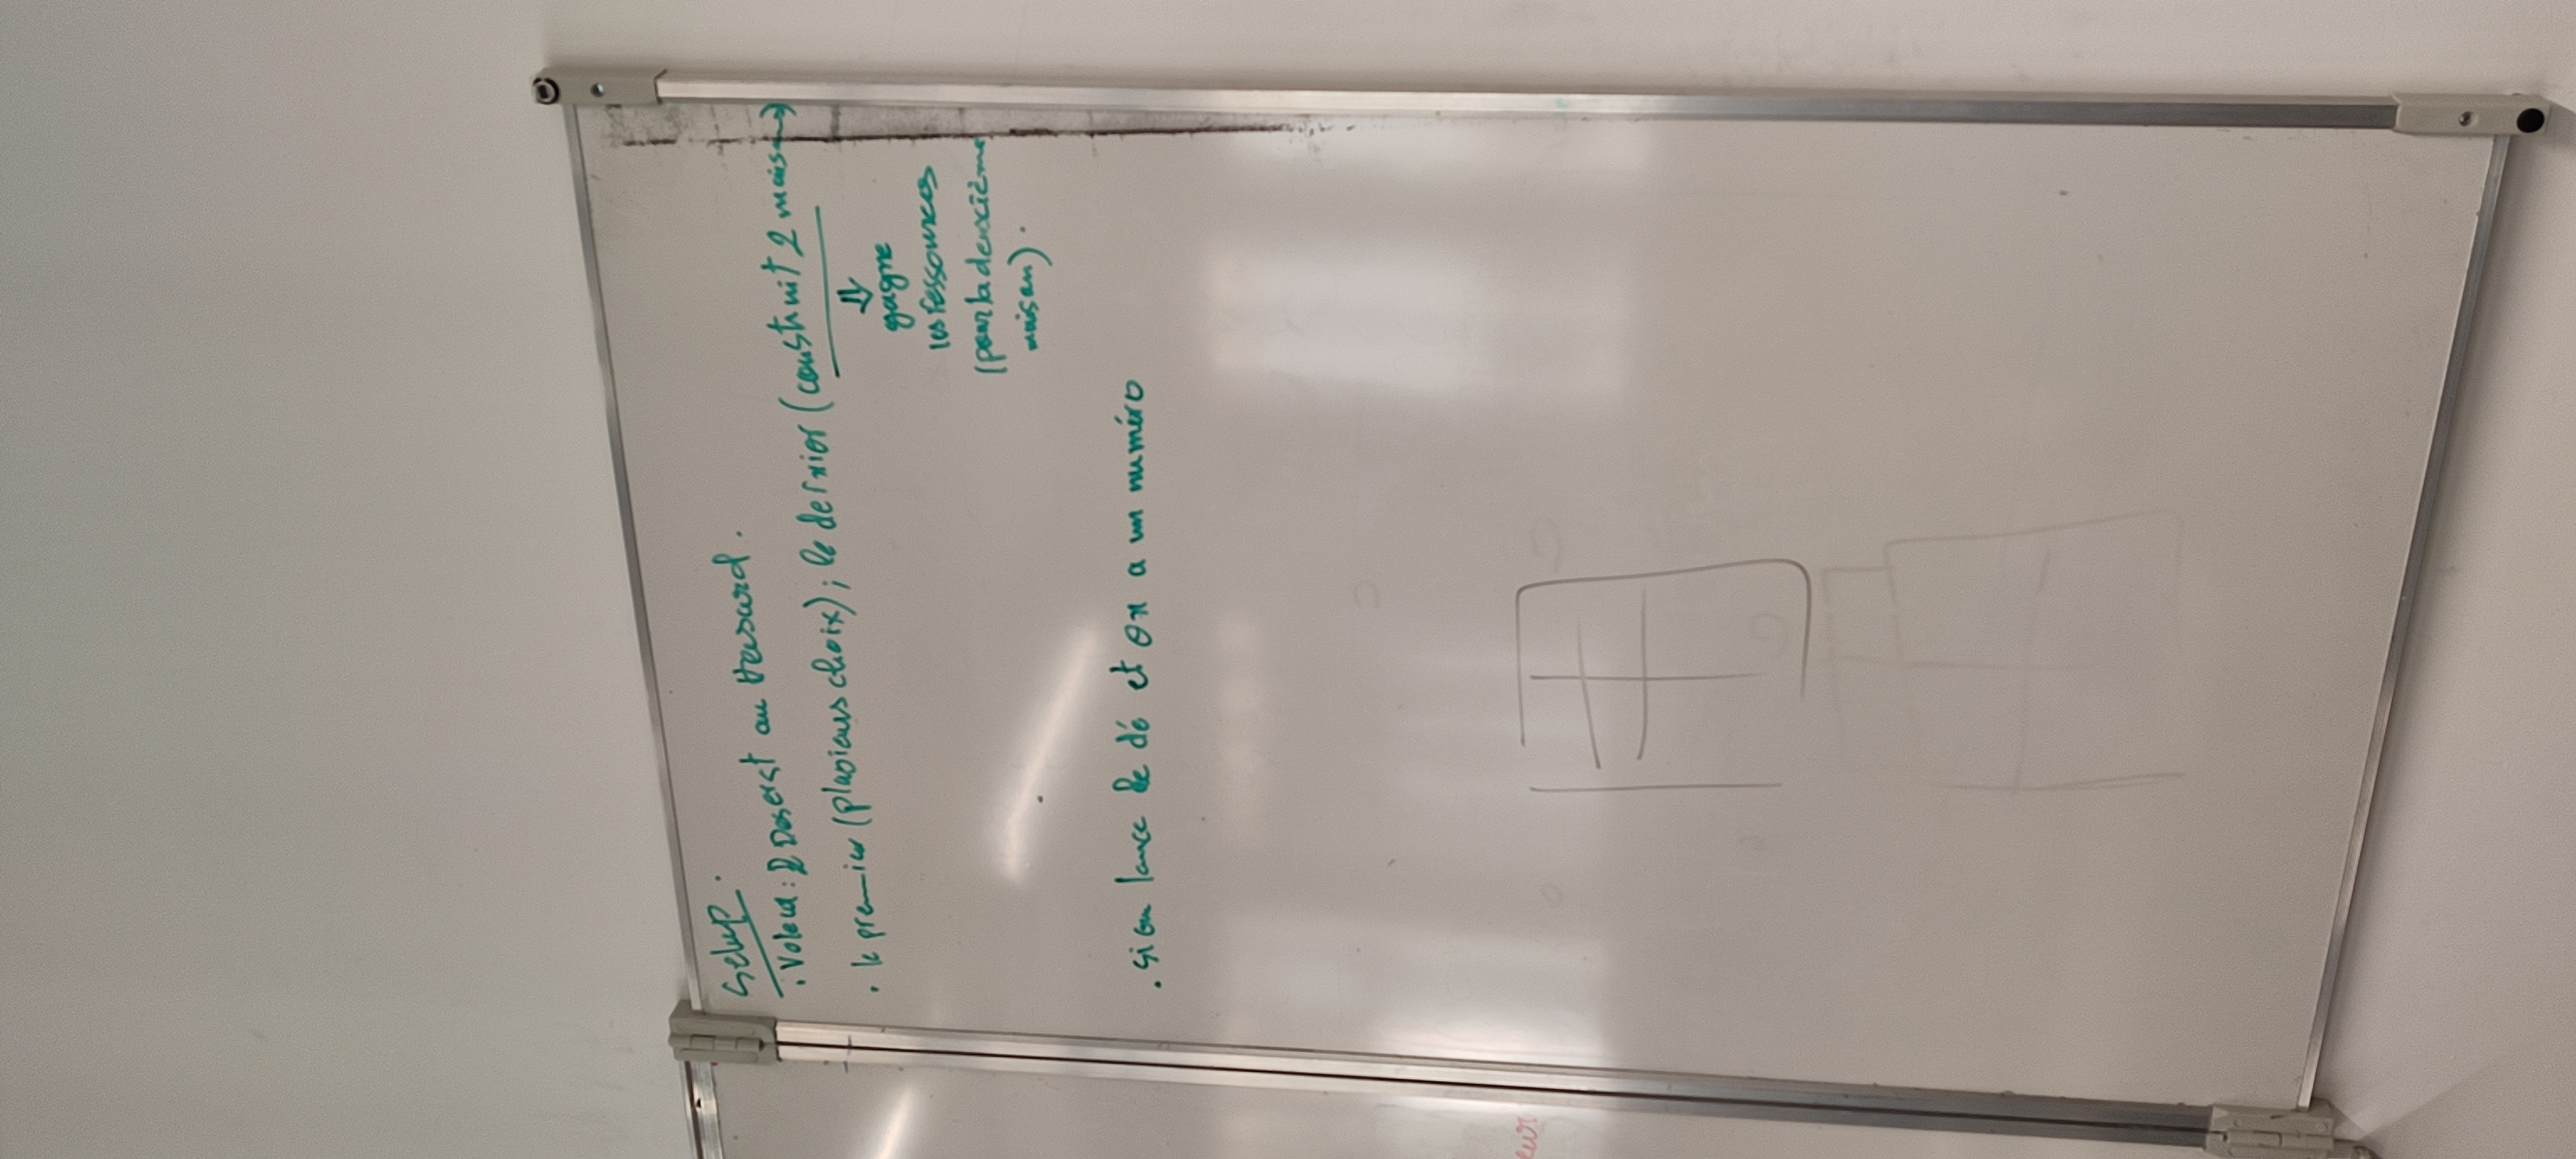 Setup.
. Voleur: 2 Deserst au Hasard.
. le premier (plusieurs choix); le dernier (construit 2 maisons)
⇓
gagne
les ressources
(pour la deuxième
maison).
. si on lance le dé et on a un numéro
eur